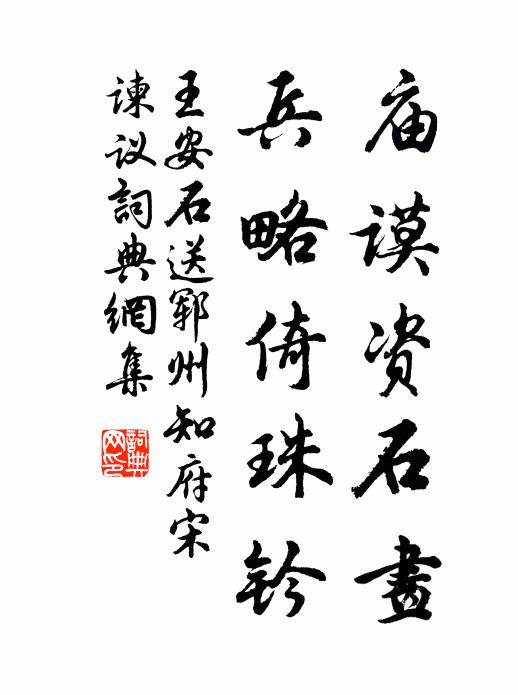 庙谟资石畫
兵略倚珠鈐
王安石送鄆州知府宋
谏议詞典網集
詞典网印